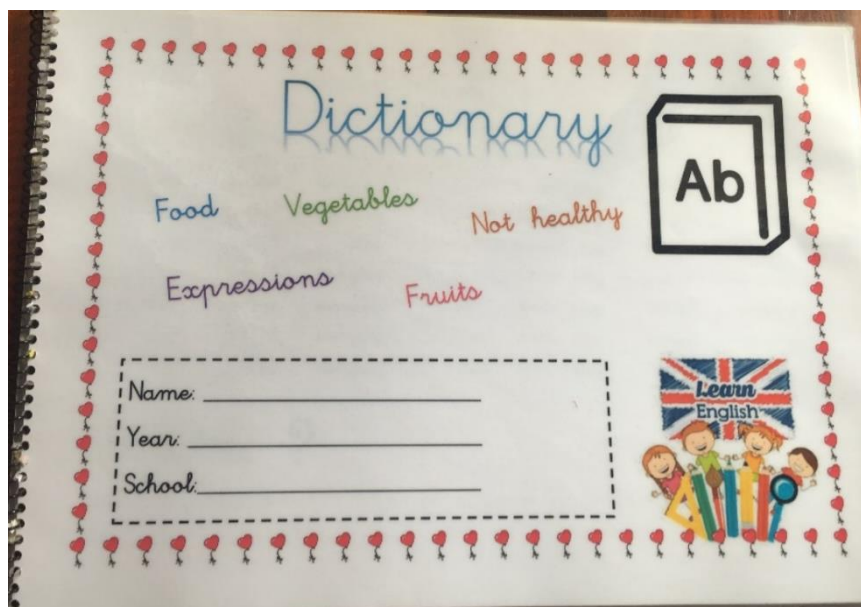 Dictionary
Ab
Food Vegetables Not healthy
Expressions Fruits
Name: ____________________
Year: ____________________
School: ____________________
Learn
English